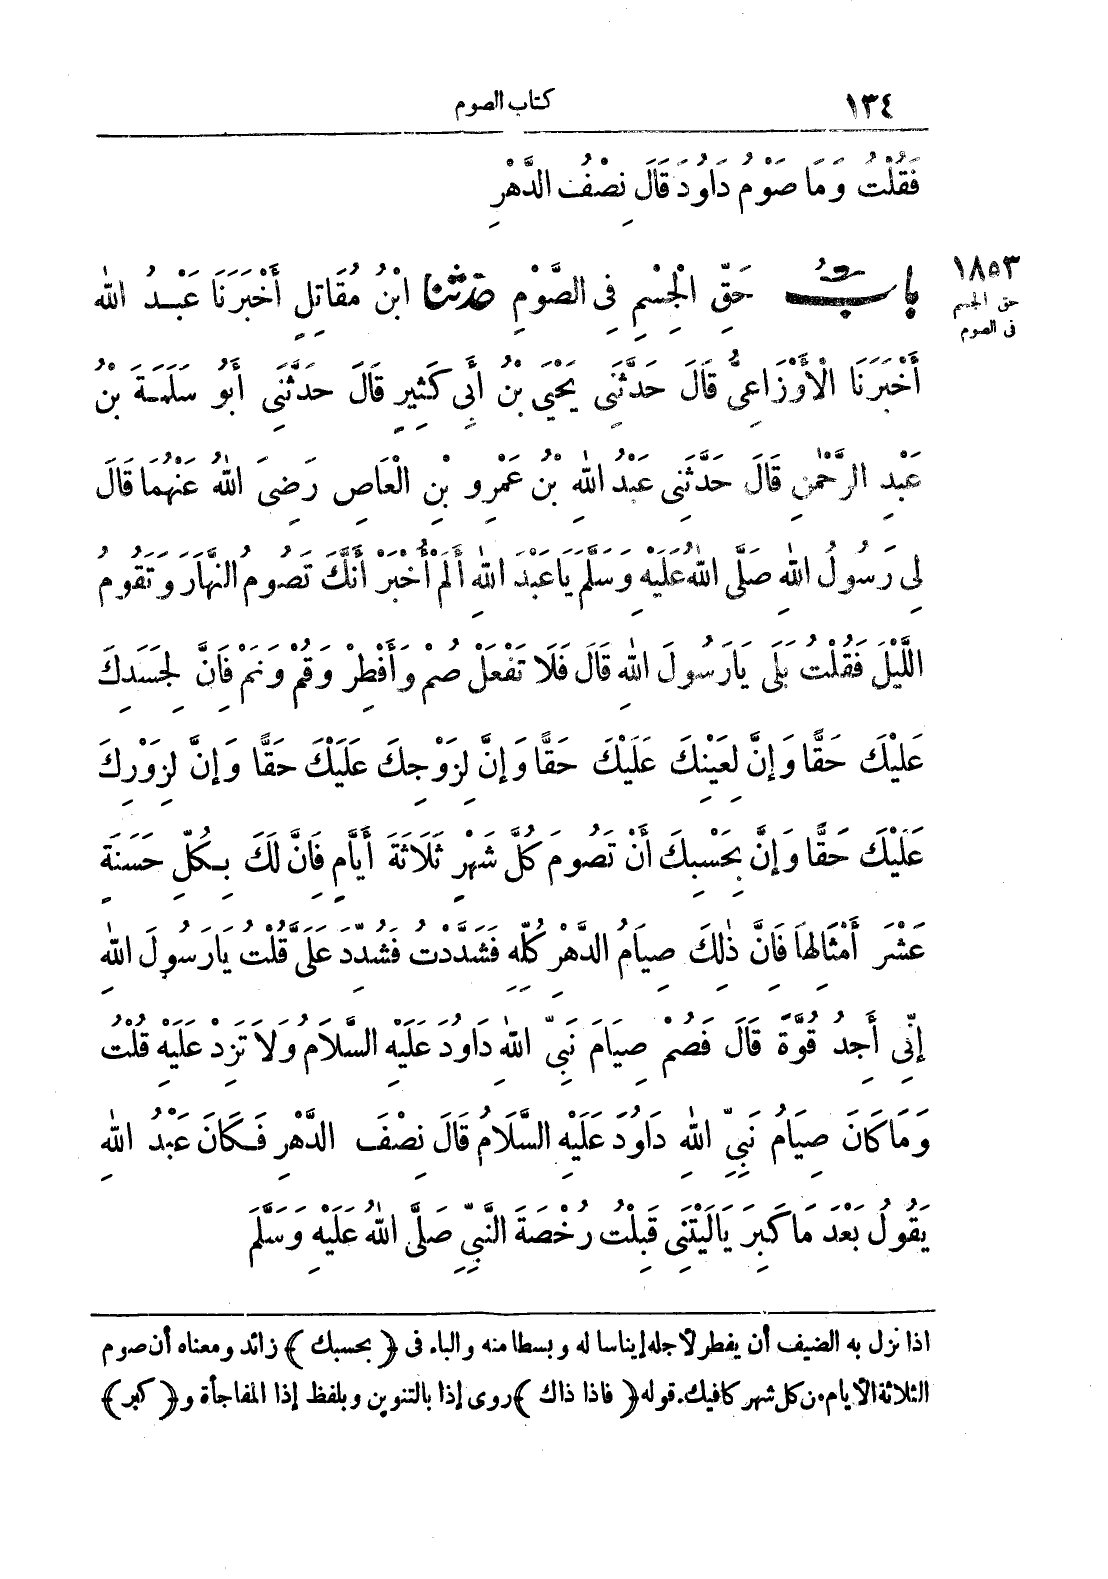 ١٣٤ كتاب الصوم
فَقُلْتُ وَمَا صَوْمُ دَاوُدَ قَالَ نِصْفُ الدَّهْرِ
١٨٥٣
حق الجسم
فى الصوم
بابُ حَقِّ الْجِسْمِ فِى الصَّوْمِ حَدَّثَنَا ابْنُ مُقَاتِلٍ أَخْبَرَنَا عَبْدُ اللهِ
أَخْبَرَنَا الْأَوْزَاعِىُّ قَالَ حَدَّثَنِى يَحْيَى بْنُ أَبِى كَثِيرٍ قَالَ حَدَّثَنِى أَبُو سَلَمَةَ بْنُ
عَبْدِ الرَّحْمٰنِ قَالَ حَدَّثَنِى عَبْدُ اللهِ بْنُ عَمْرِو بْنِ الْعَاصِ رَضِىَ اللهُ عَنْهُمَا قَالَ
لِى رَسُولُ اللهِ صَلَّى اللهُ عَلَيْهِ وَسَلَّمَ يَا عَبْدَ اللهِ أَلَمْ أُخْبَرْ أَنَّكَ تَصُومُ النَّهَارَ وَتَقُومُ
اللَّيْلَ فَقُلْتُ بَلَى يَارَسُولَ اللهِ قَالَ فَلَا تَفْعَلْ صُمْ وَأَفْطِرْ وَقُمْ وَنَمْ فَانَّ لِجَسَدِكَ
عَلَيْكَ حَقًّا وَإِنَّ لِعَيْنِكَ عَلَيْكَ حَقًّا وَإِنَّ لِزَوْجِكَ عَلَيْكَ حَقًّا وَإِنَّ لِزَوْرِكَ
عَلَيْكَ حَقًّا وَإِنَّ بِحَسْبِكَ أَنْ تَصُومَ كُلَّ شَهْرٍ ثَلَاثَةَ أَيَّامٍ فَانَّ لَكَ بِكُلِّ حَسَنَةٍ
عَشْرَ أَمْثَالِهَا فَانَّ ذٰلِكَ صِيَامُ الدَّهْرِ كُلِّهِ فَشَدَّدْتُ فَشُدِّدَ عَلَىَّ قُلْتُ يَارَسُولَ اللهِ
إِنِّى أَجِدُ قُوَّةً قَالَ فَصُمْ صِيَامَ نَبِىِّ اللهِ دَاوُدَ عَلَيْهِ السَّلَامُ وَلَا تَزِدْ عَلَيْهِ قُلْتُ
وَمَا كَانَ صِيَامُ نَبِىِّ اللهِ دَاوُدَ عَلَيْهِ السَّلَامُ قَالَ نِصْفَ الدَّهْرِ فَكَانَ عَبْدُ اللهِ
يَقُولُ بَعْدَ مَا كَبِرَ يَالَيْتَنِى قَبِلْتُ رُخْصَةَ النَّبِىِّ صَلَّى اللهُ عَلَيْهِ وَسَلَّمَ
اذا نزل به الضيف أن يفطر لأجله إيناسا له وبسطا منه والباء فى ﴿بحسبك﴾ زائد ومعناه أن صوم
الثلاثة الأيام من كل شهر كافيك. قوله ﴿فاذا ذاك﴾ روى إذا بالتنوين وبلفظ إذا المفاجأة و﴿كبر﴾